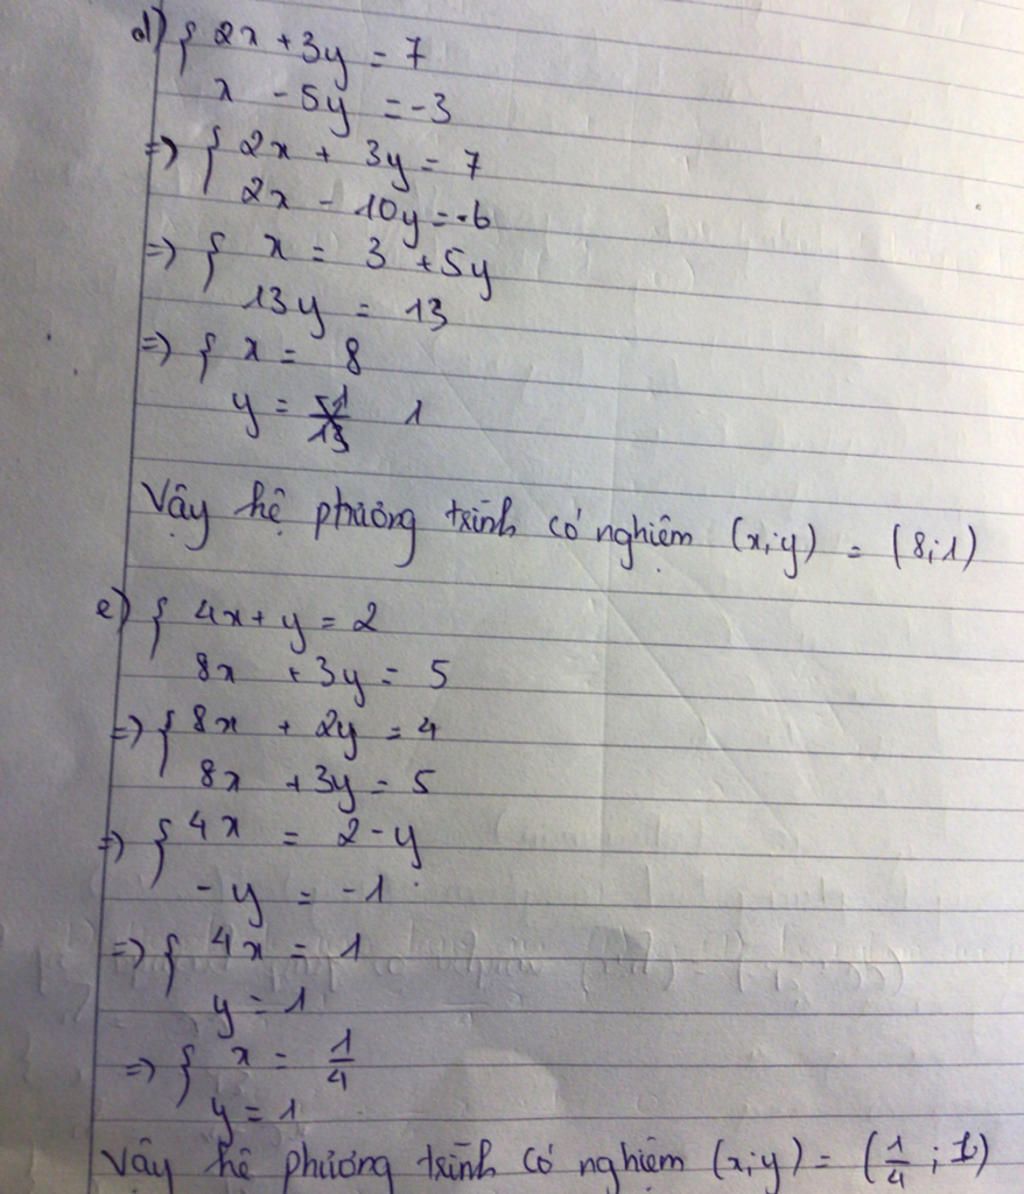 d) { 2x + 3y = 7
x - 5y = -3
=> { 2x + 3y = 7
2x - 10y = -6
=> { x = 3 + 5y
13y = 13
=> { x = 8
y = 1
Vậy hệ phương trình có nghiệm (x;y) = (8;1)
e) { 4x + y = 2
8x + 3y = 5
=> { 8x + 2y = 4
8x + 3y = 5
=> { 4x = 2 - y
-y = -1
=> { 4x = 1
y = 1
=> { x = 1/4
y = 1
Vậy hệ phương trình có nghiệm (x;y) = (1/4 ; 1)